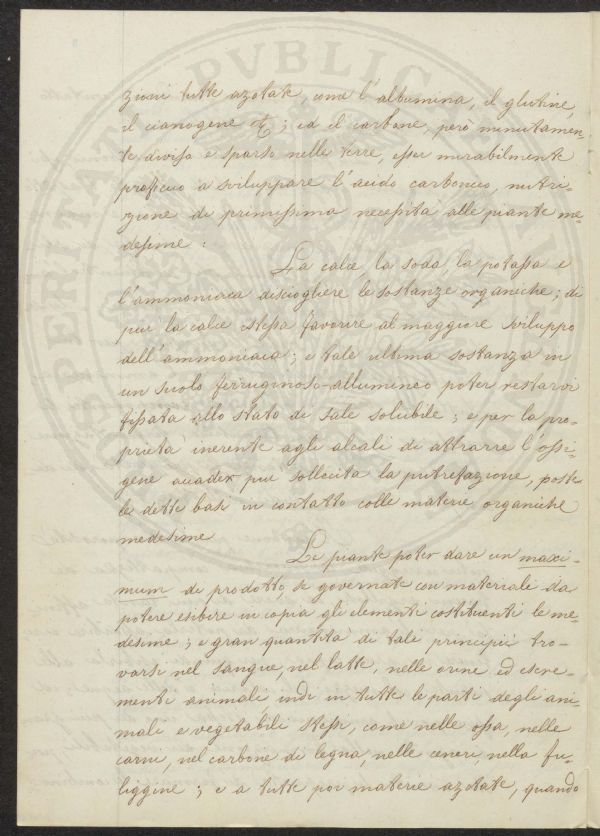 zioni tutte azotate, come l'albumina, il glutine,
il cianogene &; ed il carbone, però minutamen-
te diviso e sparso nelle terre, esser mirabilmente
proficuo a sviluppare l'acido carbonico, nutri-
zione di primissima necessità alle piante me-
desime:
La calce, la soda, la potassa e
l'ammoniaca disciogliere le sostanze organiche; di
più la calce stessa favorire al maggiore sviluppo
dell'ammoniaca; e tale ultima sostanza in
un suolo ferruginoso-allumineo poter restarvi
fissata allo stato di sale solubile; e per la pro-
prietà inerente agli alcali di attrarre l'ossi-
gene accader più sollecita la putrefazione, poste
le dette basi in contatto colle materie organiche
medesime
Le piante poter dare un maxi-
mum di prodotto, se governate con materiali da
potere esibire in copia gli elementi costituenti le me-
desime; e gran quantità di tali principii tro-
varsi nel sangue, nel latte, nelle orine ed escre-
menti animali indi in tutte le parti degli ani-
mali e vegetabili stessi, come nelle ossa, nelle
carni, nel carbone di legna, nelle ceneri, nella fu-
liggine; e a tutte poi materie azotate, quando